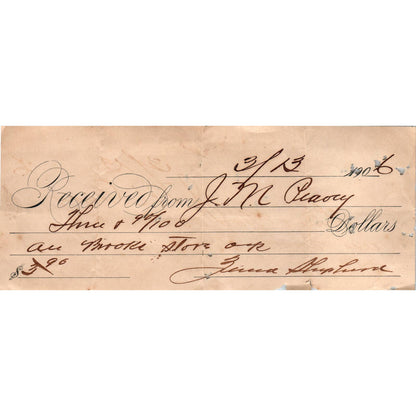 3/13 1906
Received from J. M. Peavey
Three & 90/100 Dollars
Store
$3 90 Shepherd